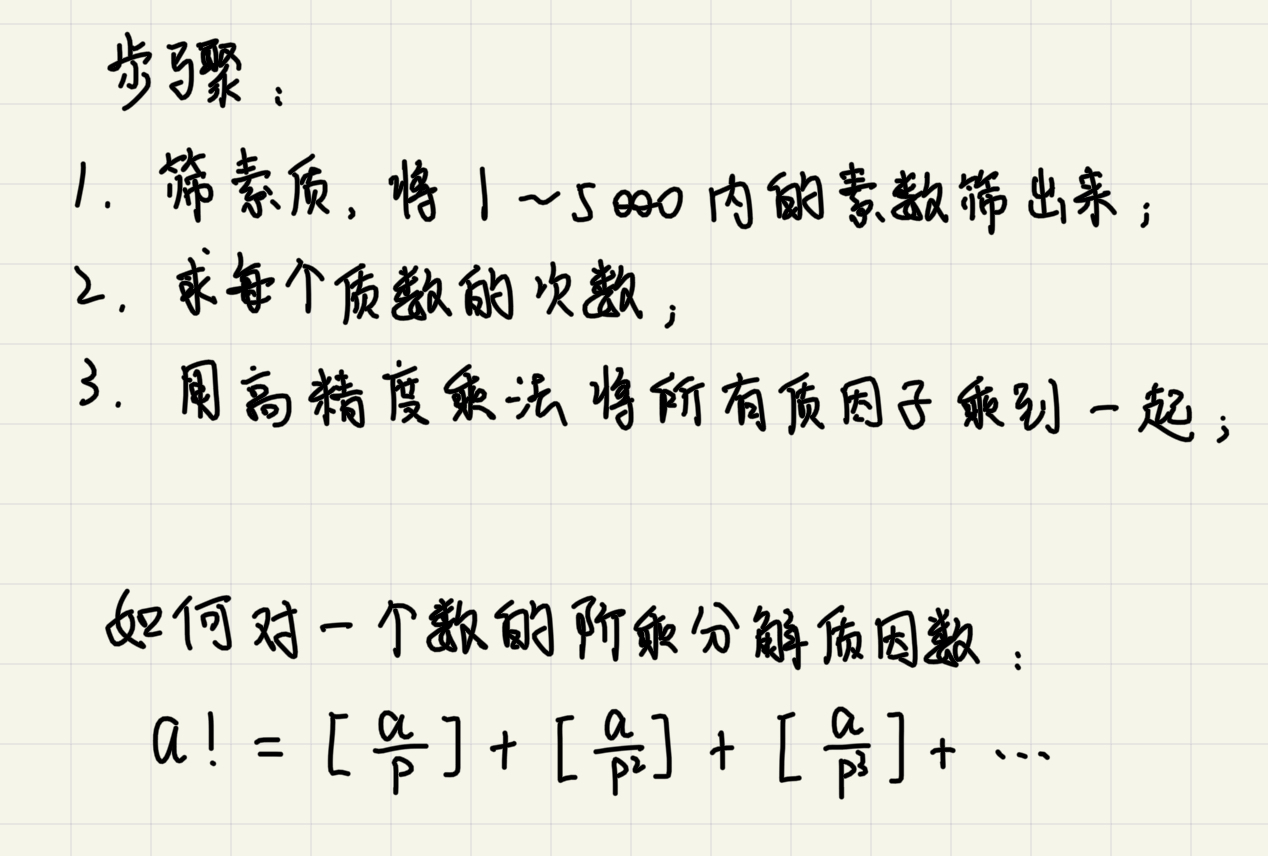 步骤：
1. 筛素质，将1~5000内的素数筛出来；
2. 求每个质数的次数；
3. 用高精度乘法将所有质因子乘到一起；
如何对一个数的阶乘分解质因数：
a! = [a/p] + [a/p²] + [a/p³] + ...